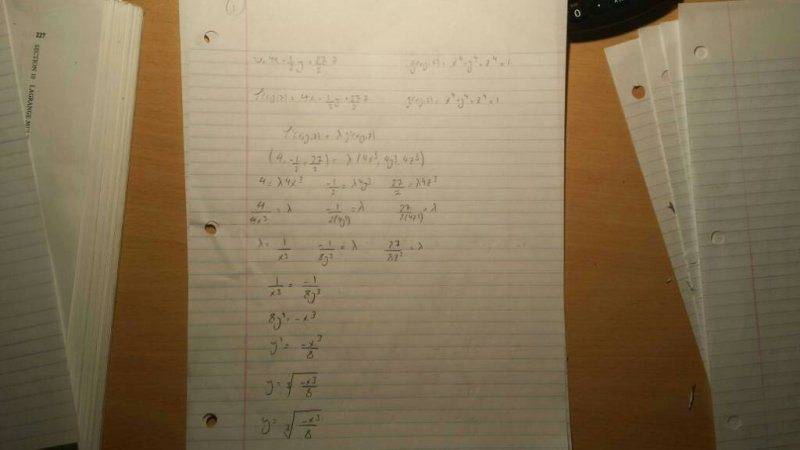 1)
227
SECTION 10
w = 4x - 1/2 y + 27/2 z g(x,y,z) = x⁴ + y⁴ + z⁴ = 1
f(x,y,z) = 4x - 1/2 y + 27/2 z g(x,y,z) = x⁴ + y⁴ + z⁴ = 1
(4, -1/2, 27/2) = λ (4x³, 4y³, 4z³)
4 = λ4x³ -1/2 = λ4y³ 27/2 = λ4z³
4/4x³ = λ -1/2(4y³) = λ 27/2(4z³) = λ
λ = 1/x³ -1/8y³ = λ 27/8z³ = λ
1/x³ = -1/8y³
8y³ = -x³
y³ = -x³/8
y = ³√(-x³/8)
y = ³√(-x³/8)